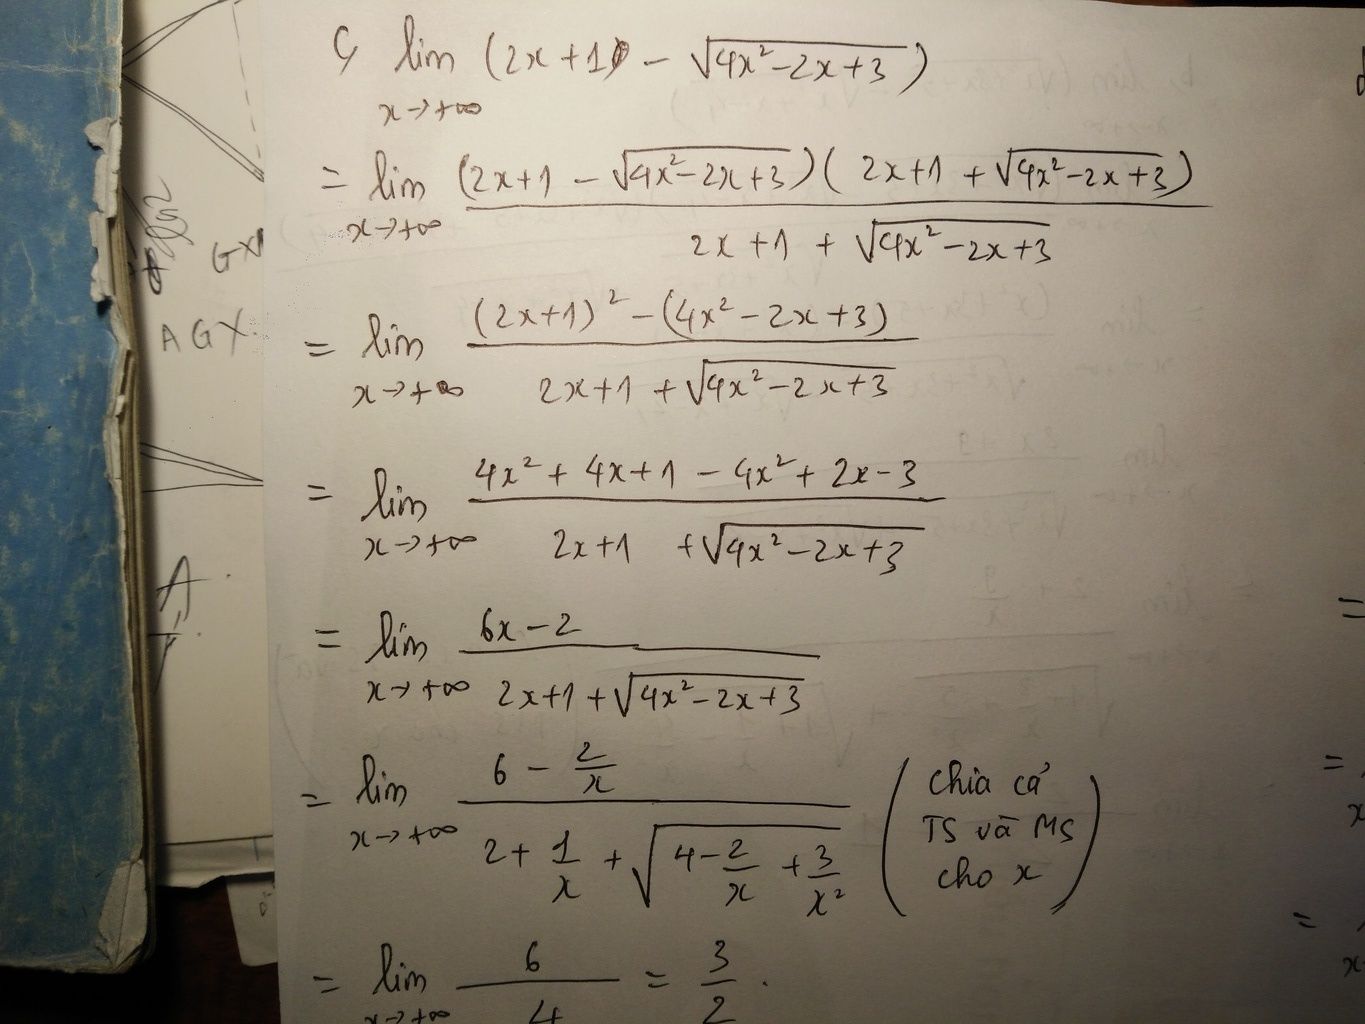 c, lim (2x+1) - √(4x²-2x+3))
x→+∞
= lim (2x+1 - √(4x²-2x+3))(2x+1 + √(4x²-2x+3))
x→+∞ 2x+1 + √(4x²-2x+3)
= lim (2x+1)² - (4x²-2x+3)
x→+∞ 2x+1 + √(4x²-2x+3)
= lim 4x² + 4x+1 - 4x² + 2x-3
x→+∞ 2x+1 + √(4x²-2x+3)
= lim 6x-2
x→+∞ 2x+1 + √(4x²-2x+3)
= lim 6 - 2/x
x→+∞ 2 + 1/x + √(4 - 2/x + 3/x²)
(chia cả
TS và MS
cho x)
= lim 6/4 = 3/2.
x→+∞
GX
A GX.
A
=
=
x
=
x